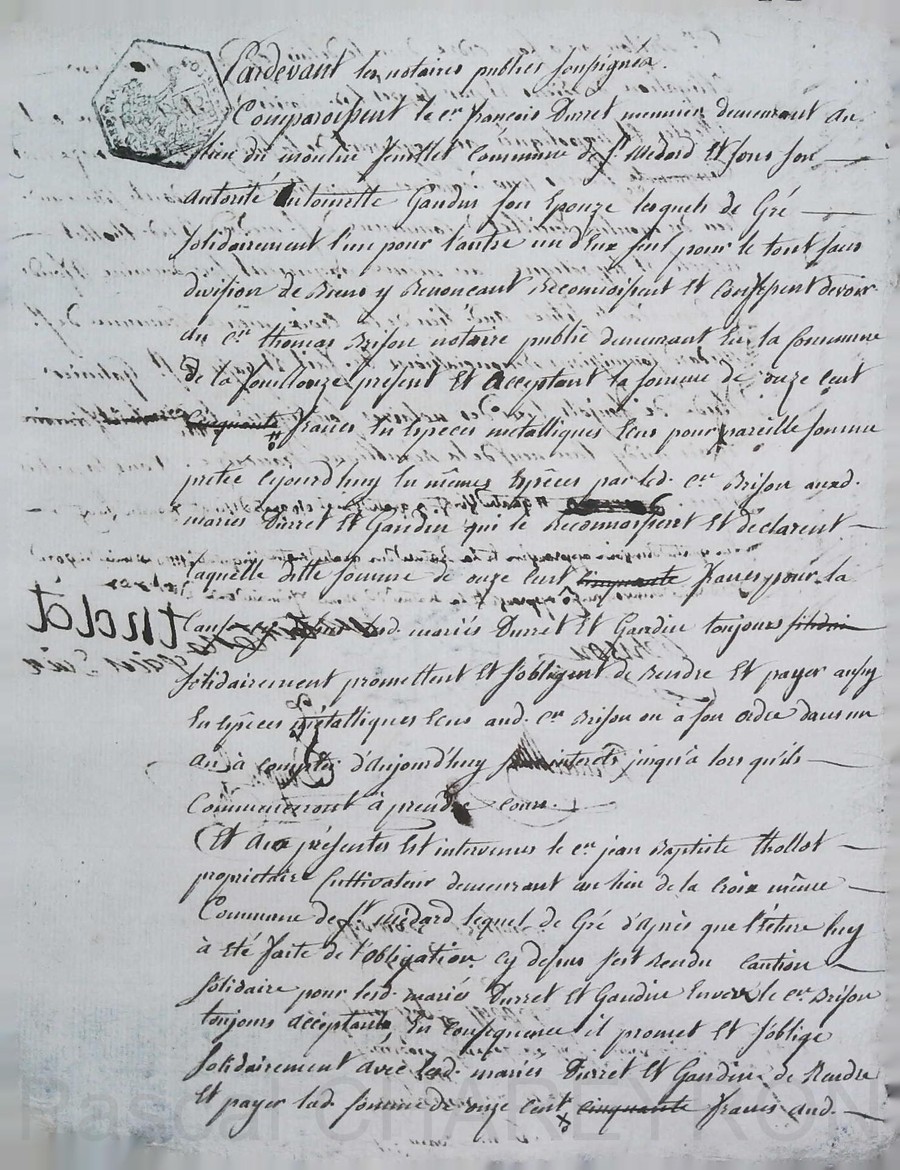 Pardevant les notaires publics soussignés.
Comparoissent le cen françois Durret meunier demeurant au
lieu du moulin commune de St Medard Et sous son
autorité Antoinette Gandin son Epouze lesquels de Gré
solidairement l'un pour l'autre un d'Eux seul pour le tout sans
division de Biens y Renoncant, Reconnoissent Et Confessent devoir
au cen thomas Brison notaire public demeurant En la Commune
De la fouillouze présent Et acceptant la somme de onze cent
Cinquante francs En Espèces métalliques Eens pour pareille somme
prêtée cejourd'huy En mêmes Espèces par led. cen Brison auxd.
mariés Durret Et Gandin qui le Reconnoissent Et déclarent
Laquelle ditte somme de onze cent Cinquante francs pour la
lesd. mariés Durret Et Gandin toujours
solidairement promettent Et s'obligent de Rendre Et payer aussy
En Espèces métalliques Eens aud. cen Brison ou à son ordre dans un
an à compter d'aujourd'huy interets jusqu'à lors qu'ils
Commenceront à prendre cours.
Et Aux présentes Est intervenu le cen jean Baptiste thollot
propriétaire Cultivateur demeurant au lieu de la Croix même
Commune de St Médard lequel de Gré d'après que lecture luy
à été faite de l'obligation cy dessus s'est Rendu Caution
solidaire pour lesd. mariés Durret Et Gandin Envers le cen Brison
toujours acceptant, En Conséquence il promet Et s'oblige
solidairement avec lesd. mariés Durret Et Gandin de Rendre
Et payer lad. somme de onze cent cinquante francs aud.
Pascal CHAREYRON